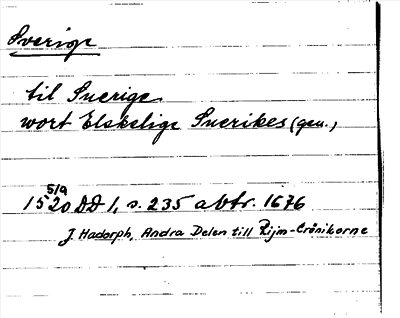 Sverige
til Suerige
wort Elskelige Suerikes (gen.)
15 5/9 20 DD 1, s. 235 avtr. 1676
J. Hadorph, Andra Delen till Rijm-Crönikorne